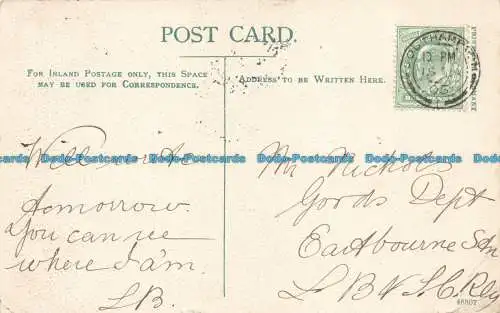 POST CARD.
FOR INLAND POSTAGE ONLY, THIS SPACE
MAY BE USED FOR CORRESPONDENCE.
ADDRESS TO BE WRITTEN HERE.
Will write
tomorrow.
You can see
where I am.
LB.
Mr Nichols
Goods Dept
Eastbourne Stn
L B & S. C. Rly
48807
SOUTHAMPTON
Dodo-Postcards Dodo-Postcards Dodo-Postcards Dodo-Postcards Dodo-Postcards